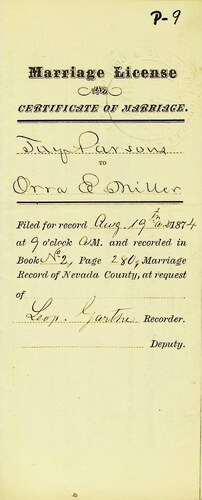 P-9
Marriage License
AND
CERTIFICATE OF MARRIAGE.
Jay Parsons
TO
Orra E Miller
Filed for record Aug 19th A.D. 1874
at 9 o'clock A.M. and recorded in
Book No 2, Page 280, Marriage
Record of Nevada County, at request
of
Leop. Garthe Recorder.
Deputy.